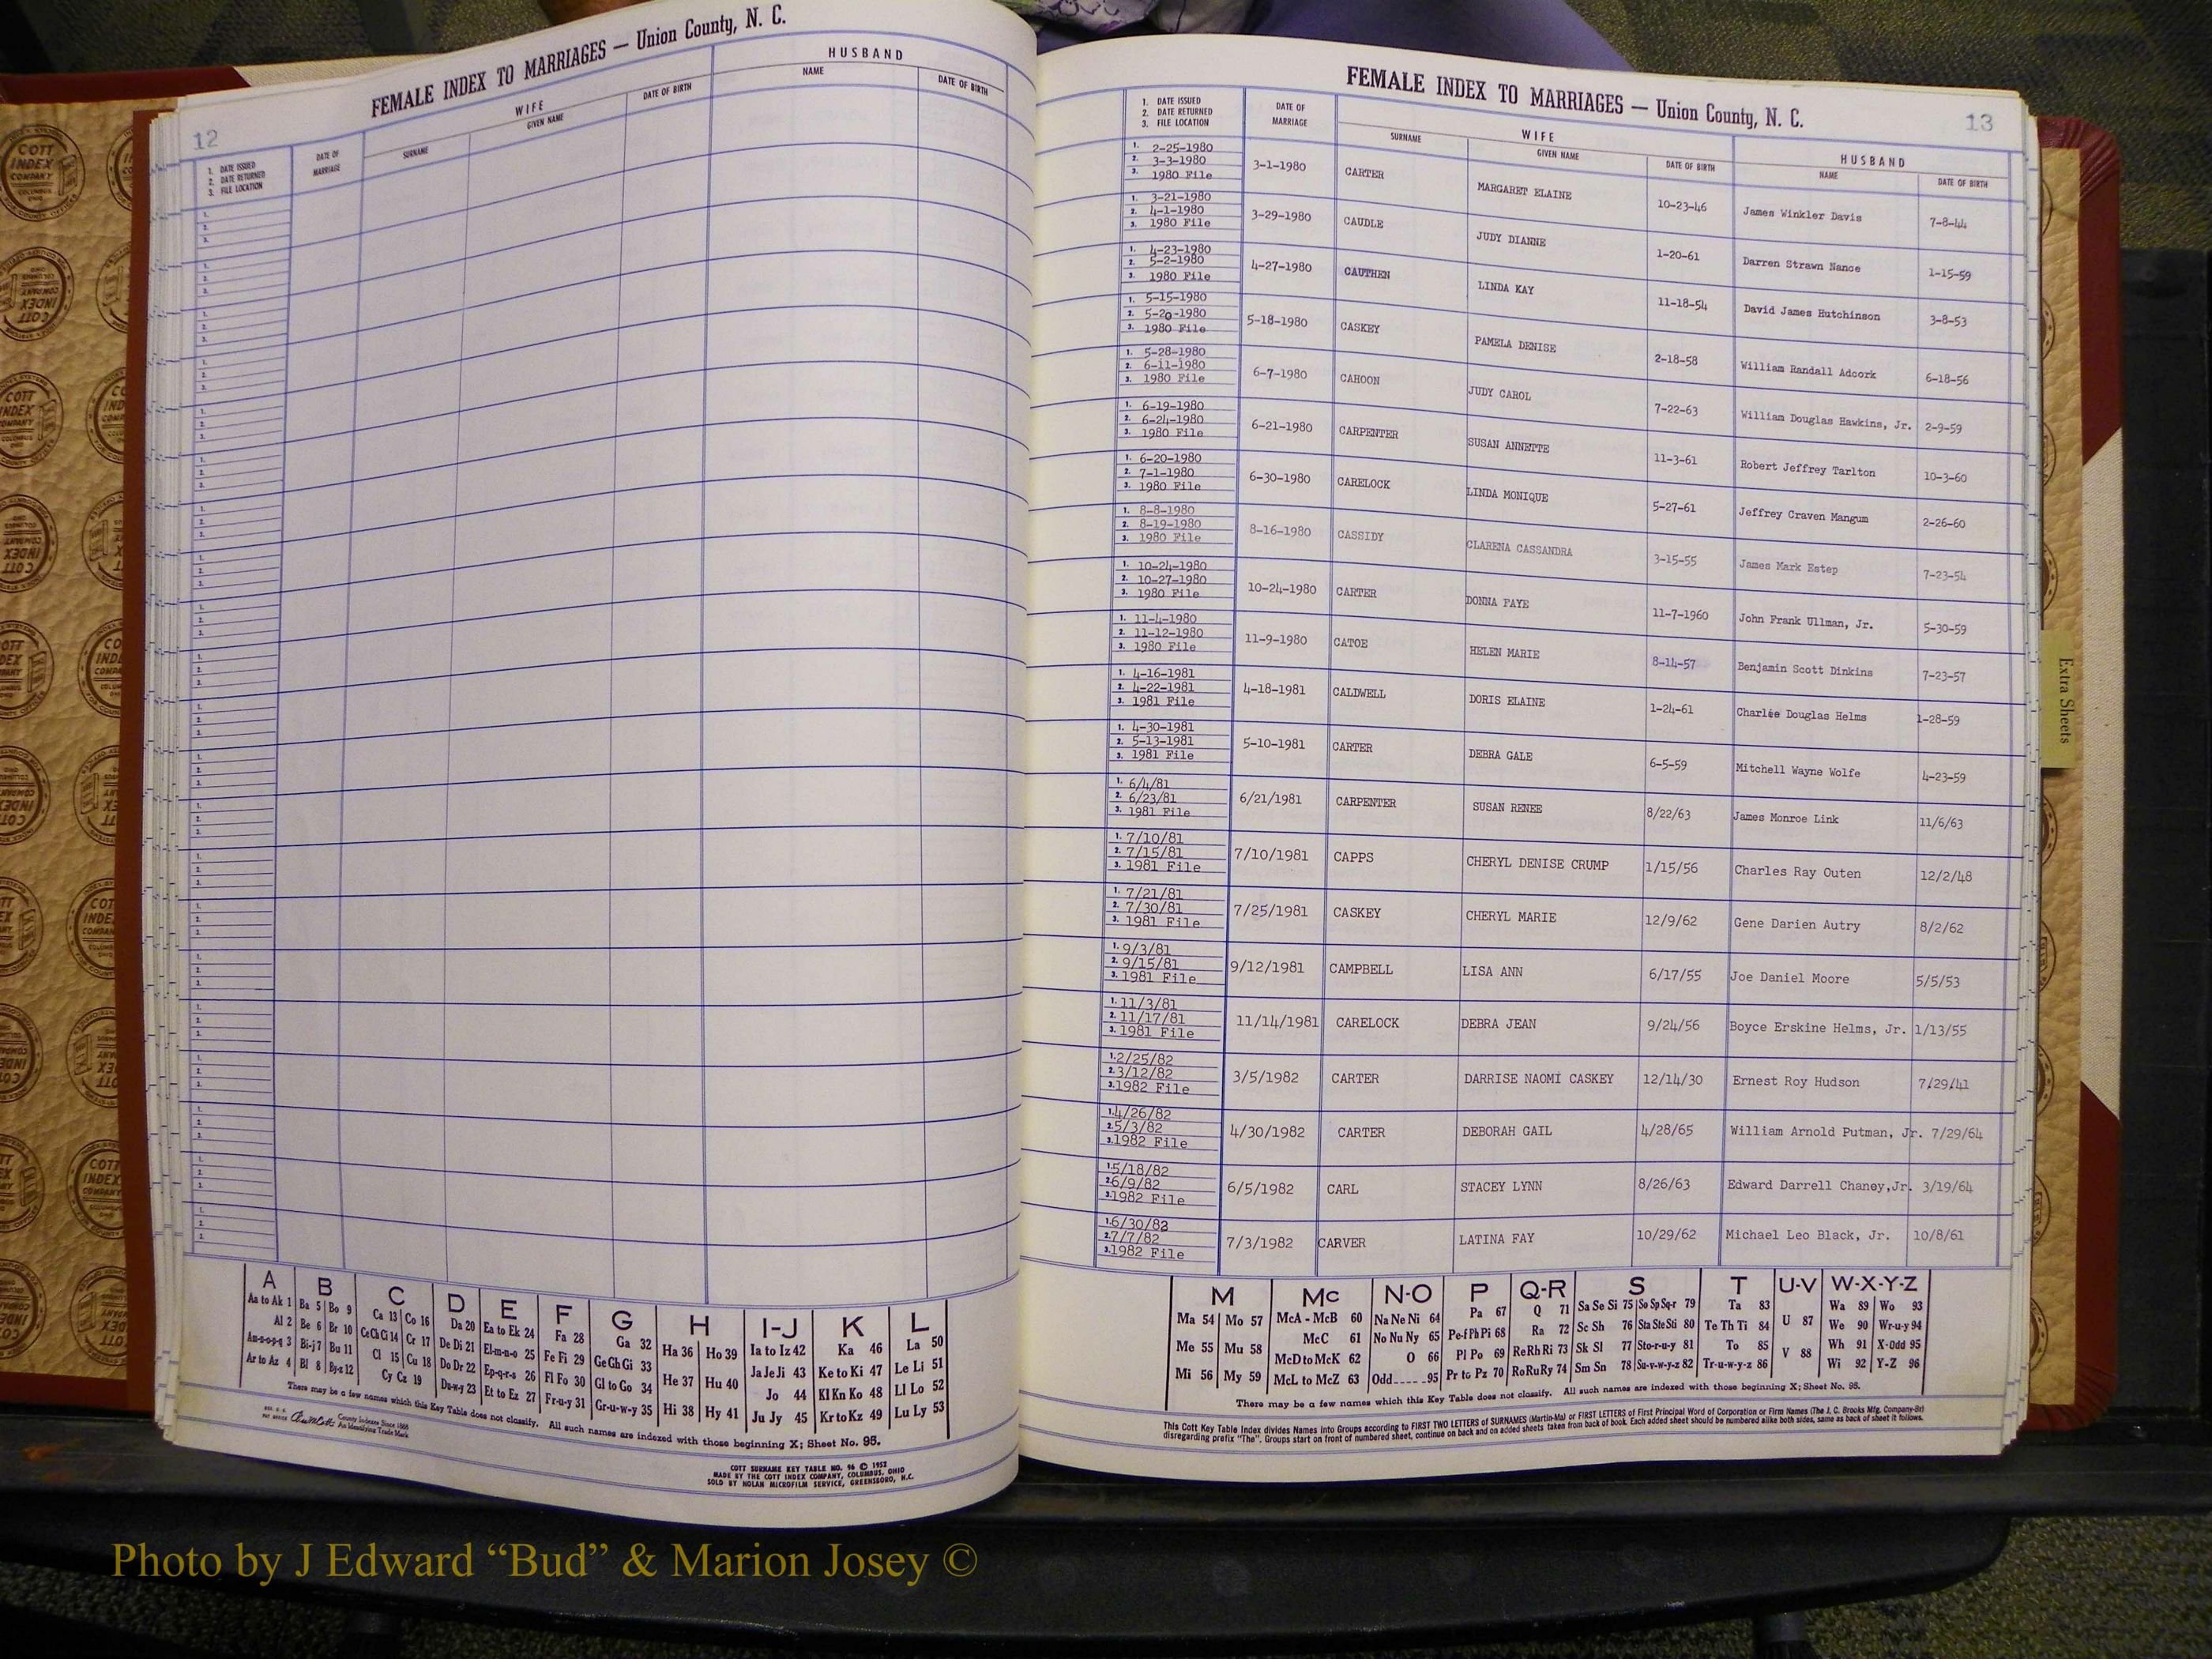 FEMALE INDEX TO MARRIAGES — Union County, N. C.
12
1. DATE ISSUED
2. DATE RETURNED
3. FILE LOCATION
DATE OF MARRIAGE
WIFE
SURNAME
GIVEN NAME
DATE OF BIRTH
HUSBAND
NAME
DATE OF BIRTH
A B C D E F G H I-J K L
Aa to Ak 1 Ba 5 Bo 9 Ca 13 Co 16 Da 20 Ea to Ek 24 Fa 28 Ga 32 Ha 36 Ho 39 Ia to Iz 42 Ka 46 La 50
Al 2 Be 6 Br 10 Ce Ch Ci 14 Cr 17 De Di 21 El-m-n-o 25 Fe Fi 29 Ge Gh Gi 33 He 37 Hu 40 Ja Je Ji 43 Ke to Ki 47 Le Li 51
Am-n-o-p-q 3 Bi-j 7 Bu 11 Cl 15 Cu 18 Do Dr 22 Ep-q-r-s 26 Fl Fo 30 Gl to Go 34 Hi 38 Hy 41 Jo 44 Kl Kn Ko 48 Ll Lo 52
Ar to Az 4 Bl 8 By-z 12 Cy Cz 19 Du-w-y 23 Et to Ez 27 Fr-u-y 31 Gr-u-w-y 35 Ju Jy 45 Kr to Kz 49 Lu Ly 53
There may be a few names which this Key Table does not classify. All such names are indexed with those beginning X; Sheet No. 95.
County Indexes Since 1888
An Identifying Trade Mark
COTT SURNAME KEY TABLE NO. 96 © 1952
MADE BY THE COTT INDEX COMPANY, COLUMBUS, OHIO
SOLD BY NOLAN MICROFILM SERVICE, GREENSBORO, N.C.
FEMALE INDEX TO MARRIAGES — Union County, N. C.
13
1. DATE ISSUED
2. DATE RETURNED
3. FILE LOCATION
DATE OF MARRIAGE
WIFE
SURNAME
GIVEN NAME
DATE OF BIRTH
HUSBAND
NAME
DATE OF BIRTH
1. 2-25-1980
2. 3-3-1980
3. 1980 File
3-1-1980 CARTER MARGARET ELAINE 10-23-46 James Winkler Davis 7-8-44
1. 3-21-1980
2. 4-1-1980
3. 1980 File
3-29-1980 CAUDLE JUDY DIANNE 1-20-61 Darren Strawn Nance 1-15-59
1. 4-23-1980
2. 5-2-1980
3. 1980 File
4-27-1980 CAUTHEN LINDA KAY 11-18-54 David James Hutchinson 3-8-53
1. 5-15-1980
2. 5-20-1980
3. 1980 File
5-18-1980 CASKEY PAMELA DENISE 2-18-58 William Randall Adcork 6-18-56
1. 5-28-1980
2. 6-11-1980
3. 1980 File
6-7-1980 CAHOON JUDY CAROL 7-22-63 William Douglas Hawkins, Jr. 2-9-59
1. 6-19-1980
2. 6-24-1980
3. 1980 File
6-21-1980 CARPENTER SUSAN ANNETTE 11-3-61 Robert Jeffrey Tarlton 10-3-60
1. 6-20-1980
2. 7-1-1980
3. 1980 File
6-30-1980 CARELOCK LINDA MONIQUE 5-27-61 Jeffrey Craven Mangum 2-26-60
1. 8-8-1980
2. 8-19-1980
3. 1980 File
8-16-1980 CASSIDY CLARENA CASSANDRA 3-15-55 James Mark Estep 7-23-54
1. 10-24-1980
2. 10-27-1980
3. 1980 File
10-24-1980 CARTER DONNA FAYE 11-7-1960 John Frank Ullman, Jr. 5-30-59
1. 11-4-1980
2. 11-12-1980
3. 1980 File
11-9-1980 CATOE HELEN MARIE 8-14-57 Benjamin Scott Dinkins 7-23-57
1. 4-16-1981
2. 4-22-1981
3. 1981 File
4-18-1981 CALDWELL DORIS ELAINE 1-24-61 Charlée Douglas Helms 1-28-59
1. 4-30-1981
2. 5-13-1981
3. 1981 File
5-10-1981 CARTER DEBRA GALE 6-5-59 Mitchell Wayne Wolfe 4-23-59
1. 6/4/81
2. 6/23/81
3. 1981 File
6/21/1981 CARPENTER SUSAN RENEE 8/22/63 James Monroe Link 11/6/63
1. 7/10/81
2. 7/15/81
3. 1981 File
7/10/1981 CAPPS CHERYL DENISE CRUMP 1/15/56 Charles Ray Outen 12/2/48
1. 7/21/81
2. 7/30/81
3. 1981 File
7/25/1981 CASKEY CHERYL MARIE 12/9/62 Gene Darien Autry 8/2/62
1. 9/3/81
2. 9/15/81
3. 1981 File
9/12/1981 CAMPBELL LISA ANN 6/17/55 Joe Daniel Moore 5/5/53
1. 11/3/81
2. 11/17/81
3. 1981 File
11/14/1981 CARELOCK DEBRA JEAN 9/24/56 Boyce Erskine Helms, Jr. 1/13/55
1. 2/25/82
2. 3/12/82
3. 1982 File
3/5/1982 CARTER DARRISE NAOMI CASKEY 12/14/30 Ernest Roy Hudson 7/29/41
1. 4/26/82
2. 5/3/82
3. 1982 File
4/30/1982 CARTER DEBORAH GAIL 4/28/65 William Arnold Putman, Jr. 7/29/64
1. 5/18/82
2. 6/9/82
3. 1982 File
6/5/1982 CARL STACEY LYNN 8/26/63 Edward Darrell Chaney,Jr. 3/19/64
1. 6/30/82
2. 7/7/82
3. 1982 File
7/3/1982 CARVER LATINA FAY 10/29/62 Michael Leo Black, Jr. 10/8/61
M Mc N-O P Q-R S T U-V W-X-Y-Z
Ma 54 Mo 57 McA - McB 60 Na Ne Ni 64 Pa 67 Q 71 Sa Se Si 75 So Sp Sq-r 79 Ta 83 U 87 Wa 89 Wo 93
Me 55 Mu 58 McC 61 No Nu Ny 65 Pe-f Ph Pi 68 Ra 72 Sc Sh 76 Sta Ste Sti 80 Te Th Ti 84 V 88 We 90 Wr-u-y 94
Mi 56 My 59 McD to McK 62 O 66 Pl Po 69 Re Rh Ri 73 Sk Sl 77 Sto-r-u-y 81 To 85 Wh 91 X-Odd 95
McL to McZ 63 Odd 95 Pr to Pz 70 Ro Ru Ry 74 Sm Sn 78 Su-v-w-y-z 82 Tr-u-w-y-z 86 Wi 92 Y-Z 96
There may be a few names which this Key Table does not classify. All such names are indexed with those beginning X; Sheet No. 95.
This Cott Key Table Index divides Names into Groups according to FIRST TWO LETTERS of SURNAMES (Martin-Ma) or FIRST LETTERS of First Principal Word of Corporation or Firm Names (The J. C. Brooks Mfg. Company-Br)
disregarding prefix "The". Groups start on front of numbered sheet, continue on back and on added sheets taken from back of book. Each added sheet should be numbered alike both sides, same as back of sheet it follows.
Extra Sheets
COTT INDEX COMPANY
Photo by J Edward “Bud” & Marion Josey ©